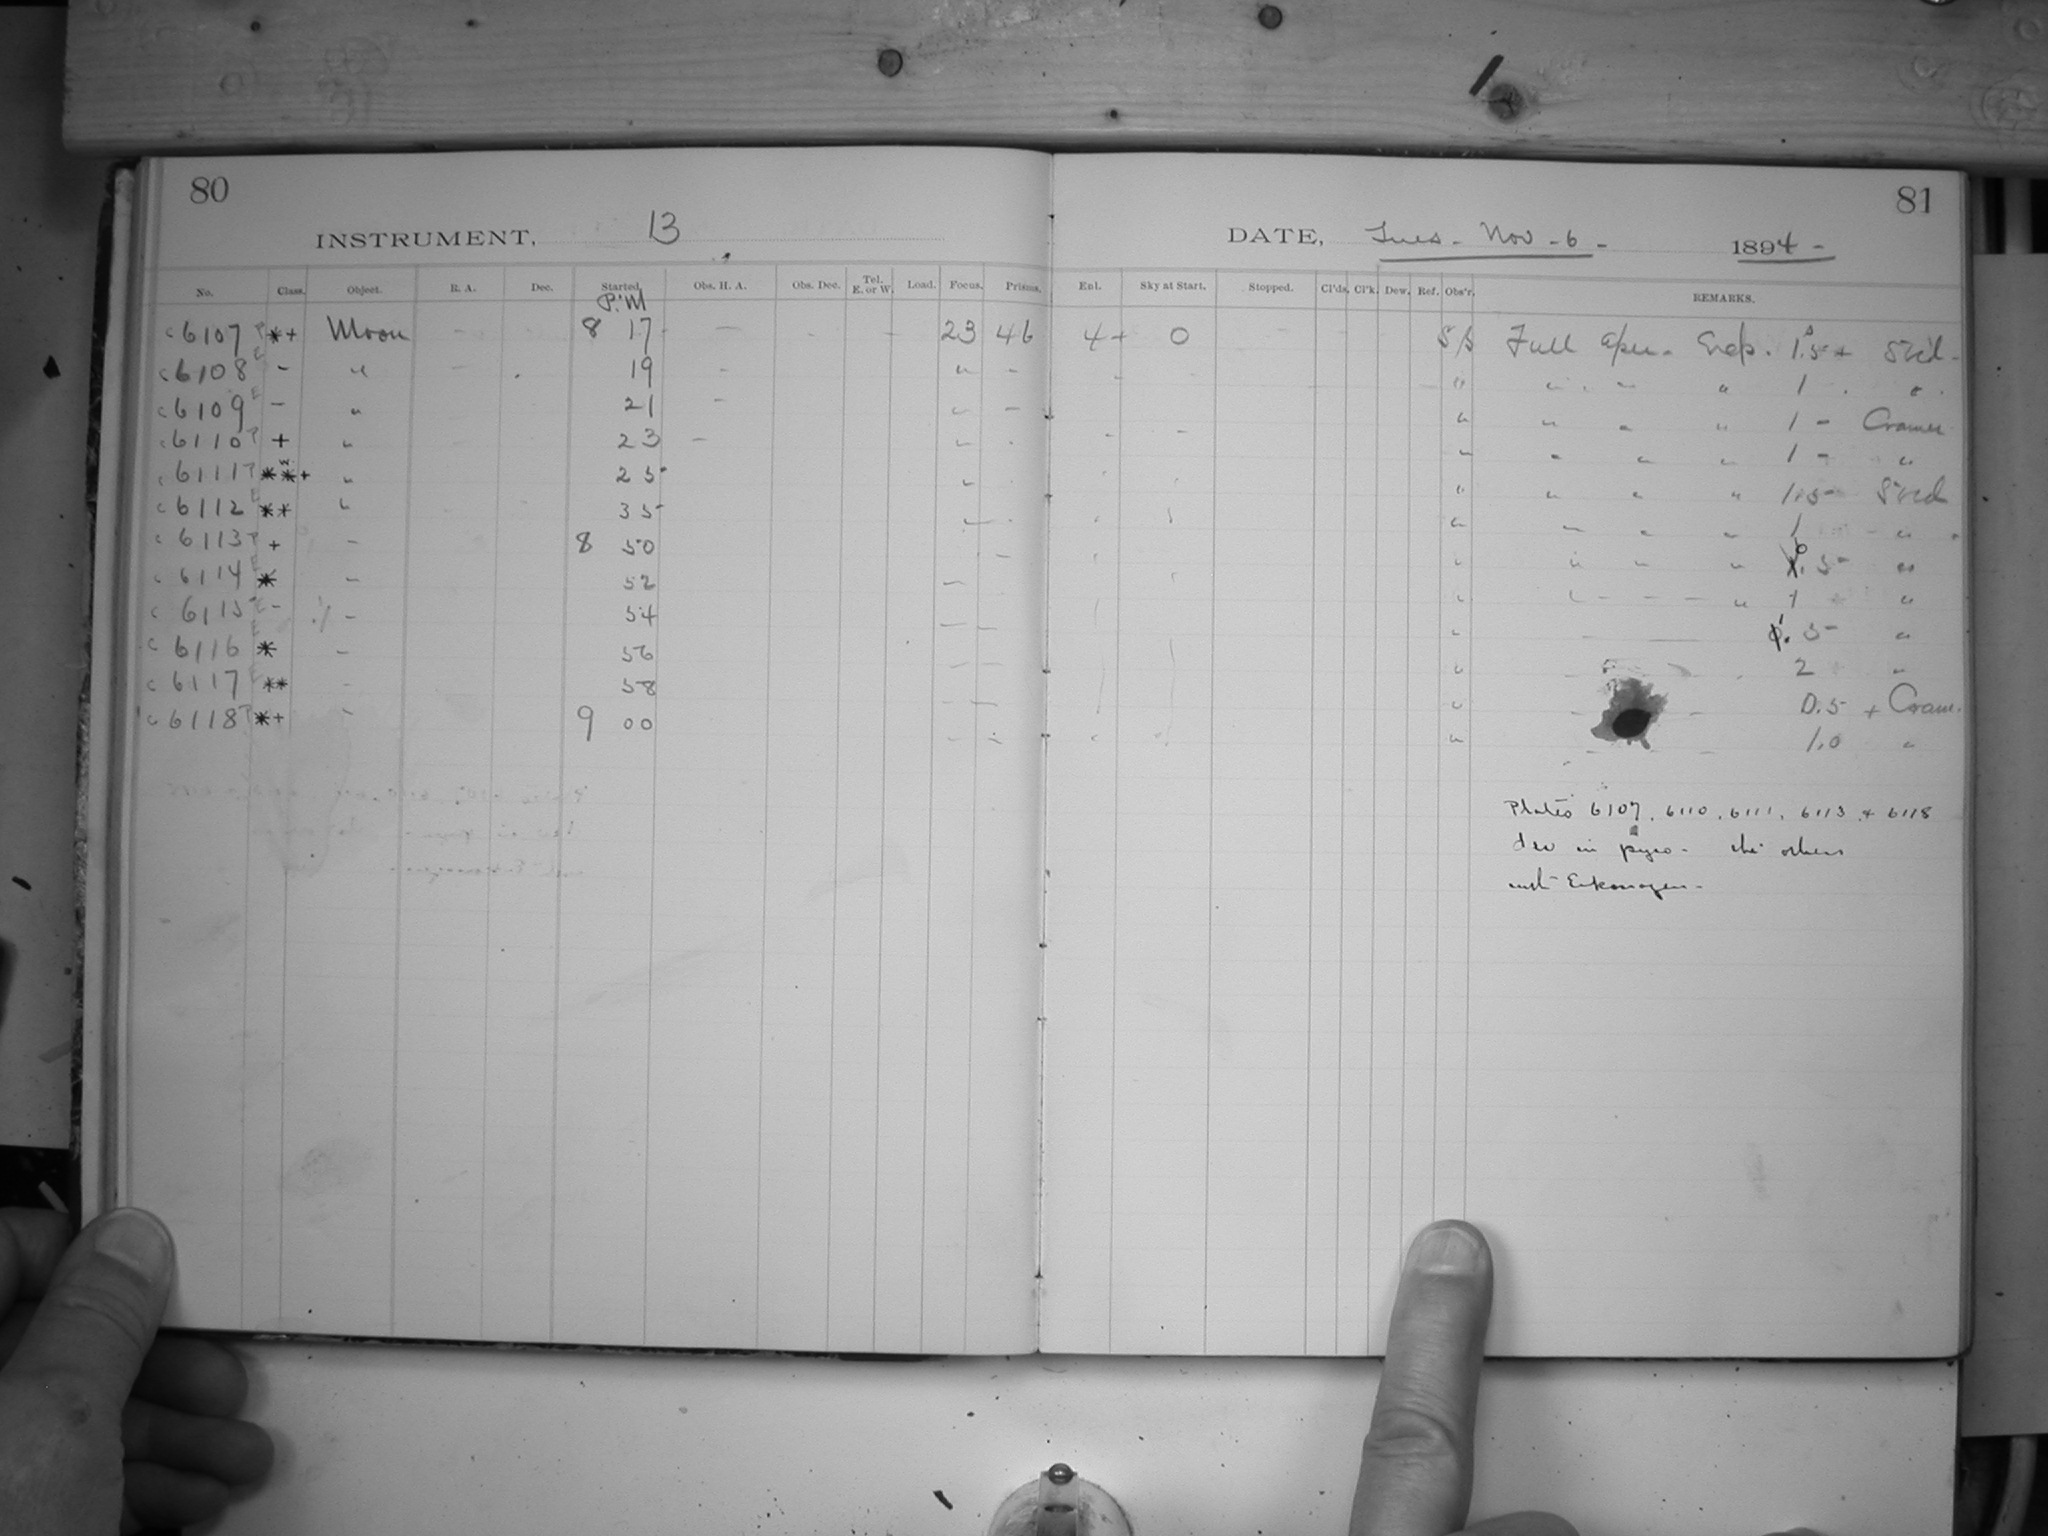 80
81
INSTRUMENT, 13
DATE, Tues - Nov - 6 - 1894 -
No. Class. Object. R. A. Dec. Started. Obs. H. A. Obs. Dec. Tel. E. or W. Load. Focus. Prisms. Enl. Sky at Start. Stopped. Cl'ds. Cl'k. Dew. Ref. Obs'r. REMARKS.
P.M
c 6107 P *+ Moon 8 17 23 46 4+ 0 Full Aper. Exp. 1.5+
c 6108 E - " 19 " - " " " " 1 "
c 6109 E - " 21 " - " " " " 1 - Cramer
c 6110 P + " 23 " " " " " 1 - "
c 6111 P **+ " 25 " " " " " 1.5-
c 6112 E ** " 35 " " " " 1 "
c 6113 P + - 8 50 " " " " .5- "
c 6114 E * - 52 " " "
c 6115 E - - 54 " .5- "
c 6116 E * - 56 " 2 "
c 6117 E ** - 58 " 0.5 + Cram.
c 6118 P *+ - 9 00 " 1.0 "
Plates 6107, 6110, 6111, 6113 + 6118
dev in pyro - the others
with Eikonogen -